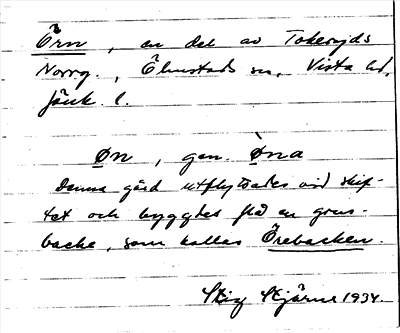 Örn, en del av Tokeryds
Norrg., Ölmstads sn, Vista hd,
Jönk. l.
Øn, gen. Øna
Denna gård utflyttades vid skif-
tet och byggdes på en grus-
backe, som kallas Örebacken.
Stig Stjärne 1934.